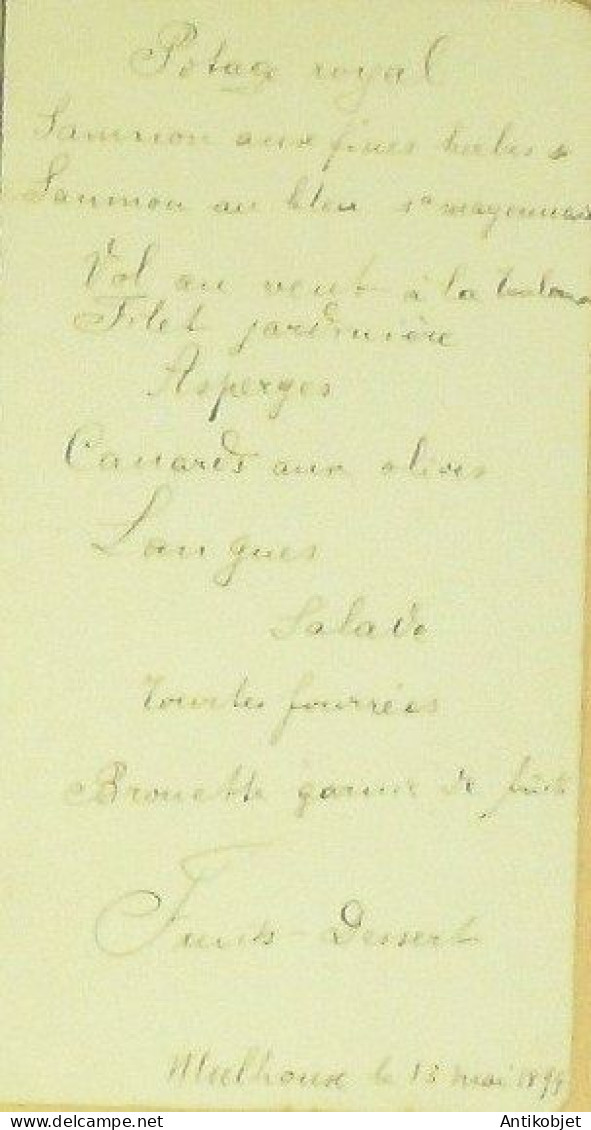 Potage royal
Saumon aux fines herbes
Saumon au bleu sce mayonnaise
Vol au vent à la
Filet jardinière
Asperges
Canards aux olives
Langues
Salade
Tourtes fourrées
Brouette garnie de fruits
Fruits - Dessert
Mulhouse le 13 mai 1899
© Antikobjet